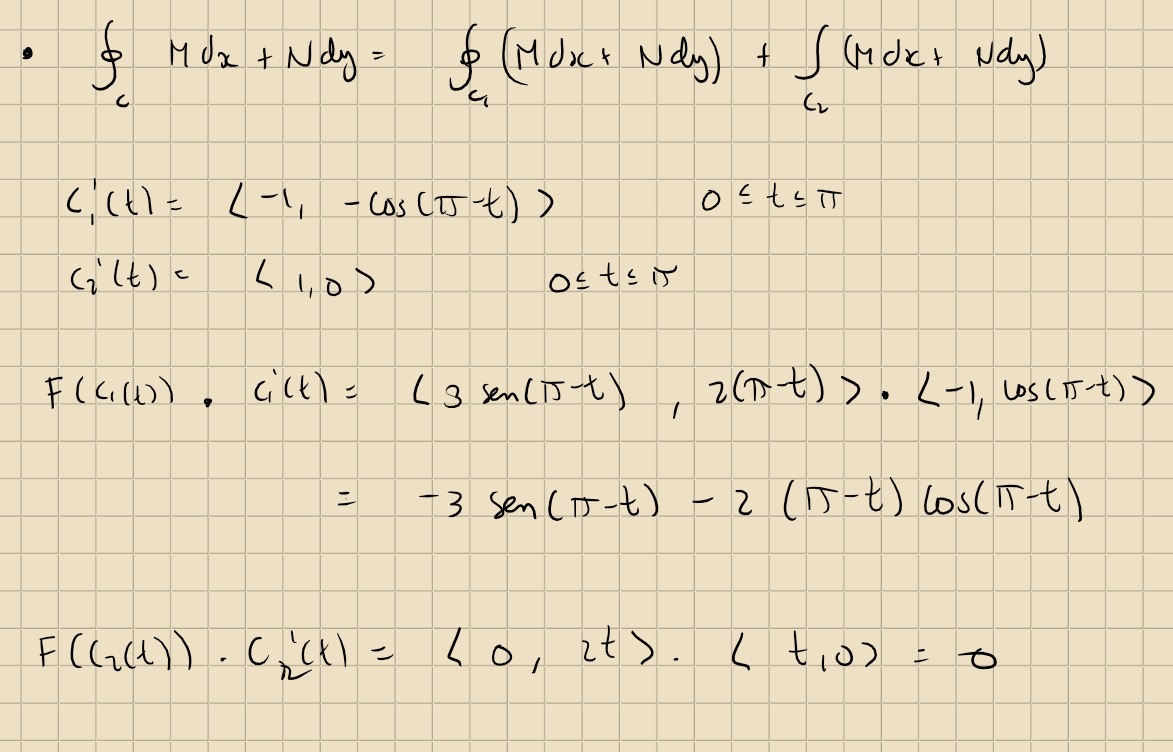 • ∮_C M dx + N dy = ∮_C₁ (M dx + N dy) + ∫_C₂ (M dx + N dy)
C₁'(t) = < -1, -cos(π-t) > 0 ≤ t ≤ π
C₂'(t) = < 1, 0 > 0 ≤ t ≤ π
F(C₁(t)) • C₁'(t) = < 3 sen(π-t) , 2(π-t) > • < -1, cos(π-t) >
= -3 sen(π-t) - 2 (π-t) cos(π-t)
F(C₂(t)) • C₂'(t) = < 0, 2t > • < t, 0 > = 0